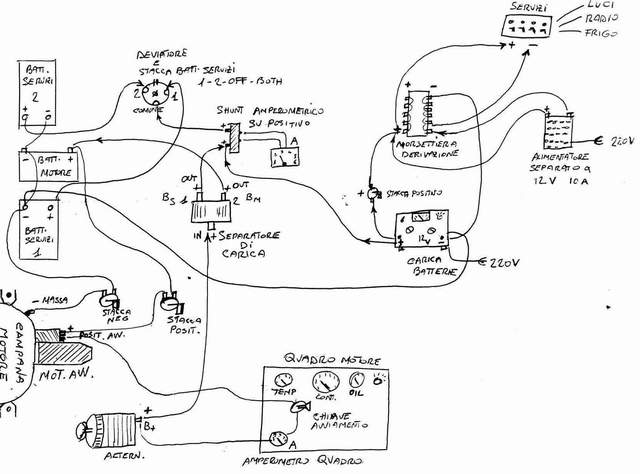 SERVIZI
LUCI
RADIO
FRIGO
+ -
DEVIATORE
e
STACCA BATT. SERVIZI
1-2-OFF-BOTH
2 1
COMUNE
BATT.
SERVIZI
2
+ -
SHUNT AMPEROMETRICO
SU POSITIVO
A
+ -
MORSETTIERA
DERIVAZIONE
ALIMENTATORE
SEPARATO a
12V 10A
220V
- +
BATT.
MOTORE
OUT OUT
BS 1 2 BM
IN +
SEPARATORE
DI
CARICA
+ STACCA POSITIVO
12V
+ -
CARICA
BATTERIE
220V
- +
BATT.
SERVIZI
1
- MASSA
STACCA
NEG
STACCA
POSIT.
+
POSIT. AVV.
CAMPANA
MOTORE
MOT. AVV.
QUADRO MOTORE
TEMP
CONT.
OIL
CHIAVE
AVVIAMENTO
A
AMPEROMETRO QUADRO
+
B+
-
ALTERN.